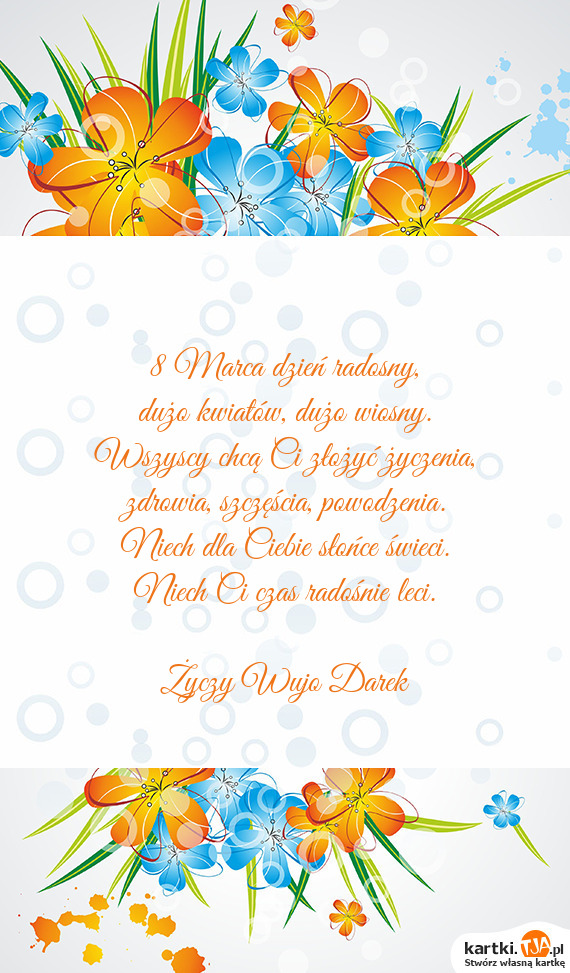 8 Marca dzień radosny,
dużo kwiatów, dużo wiosny.
Wszyscy chcą Ci złożyć życzenia,
zdrowia, szczęścia, powodzenia.
Niech dla Ciebie słońce świeci.
Niech Ci czas radośnie leci.
Życzy Wujo Darek
kartki.TJA.pl
Stwórz własną kartkę